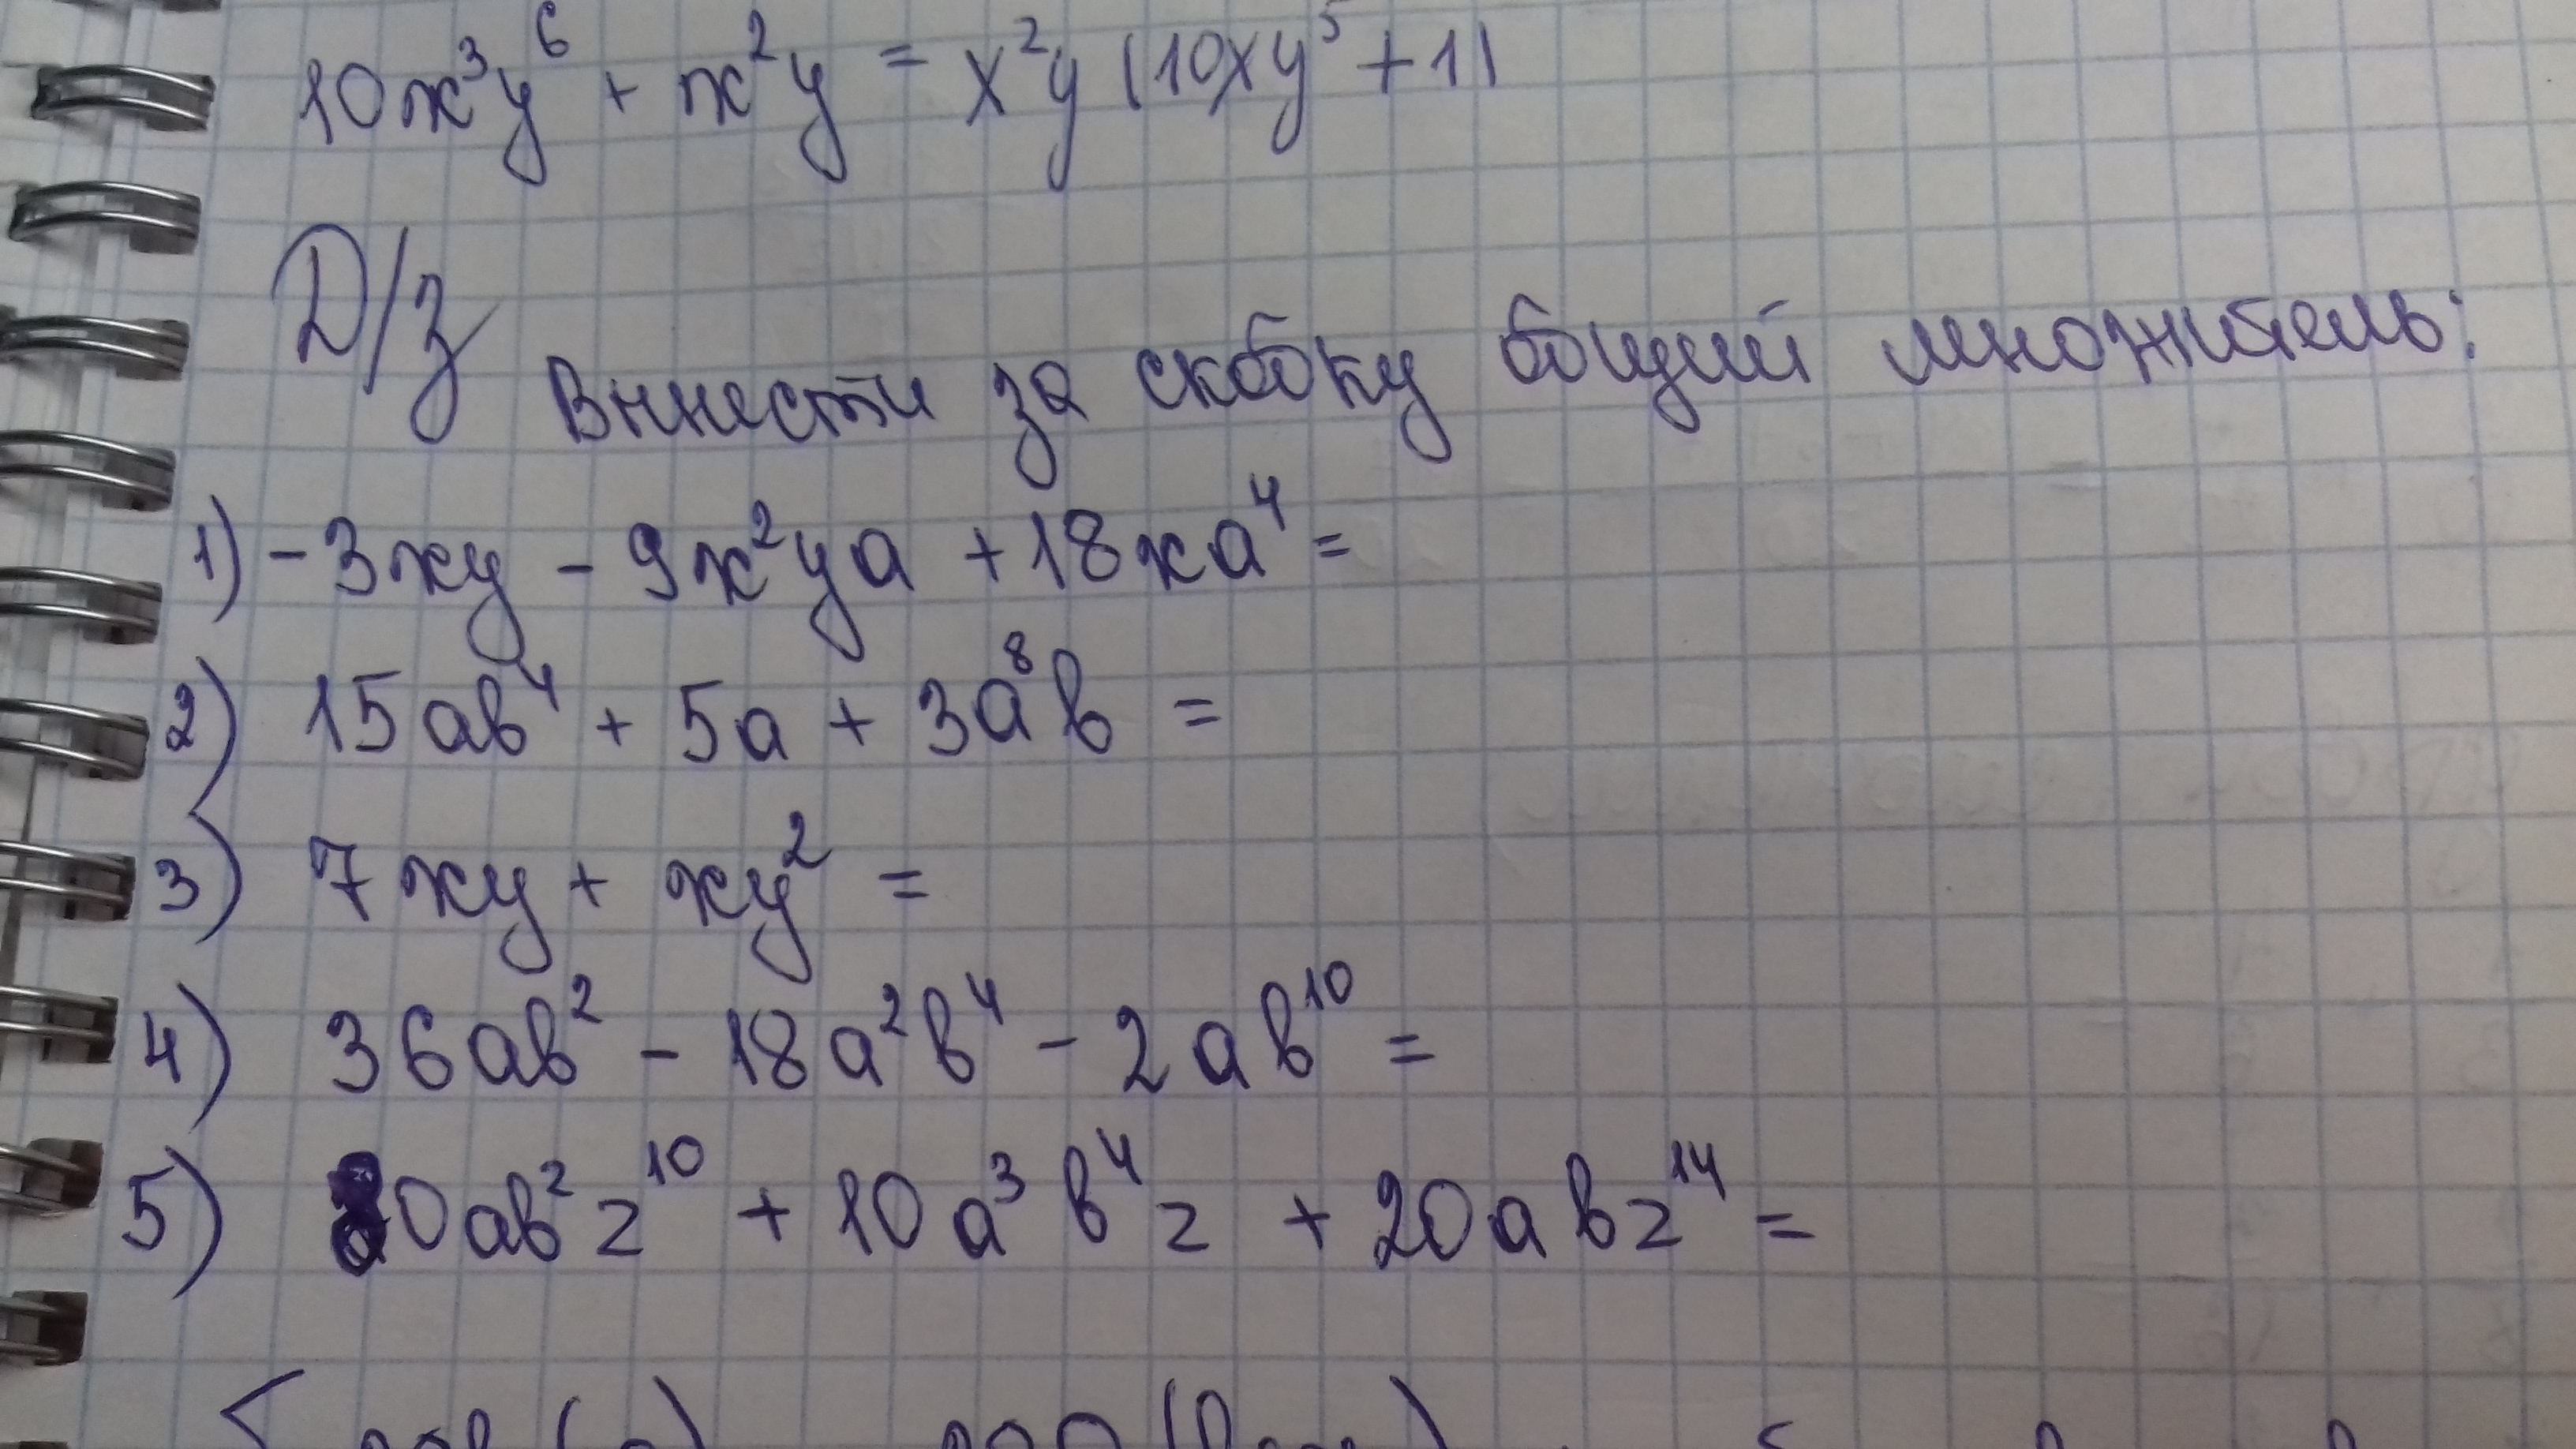 10x³y⁶ + x²y = x²y (10xy⁵ + 1)
Д/З
Вынести за скобку общий множитель:
1) -3xy - 9x²ya + 18xa⁴ =
2) 15ab⁴ + 5a + 3a⁸b =
3) 7xy + xy² =
4) 36ab² - 18a²b⁴ - 2ab¹⁰ =
5) 0ab²z¹⁰ + 10a³b⁴z + 20abz¹⁴ =